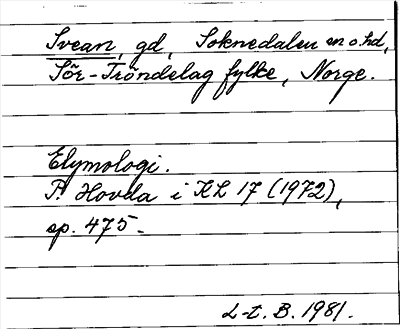 Svean, gd, Soknedalen sn o. hd,
Sör-Tröndelag fylke, Norge.
Etymologi.
P. Hovda i KL 17 (1972),
sp. 475.
L-t. B. 1981.